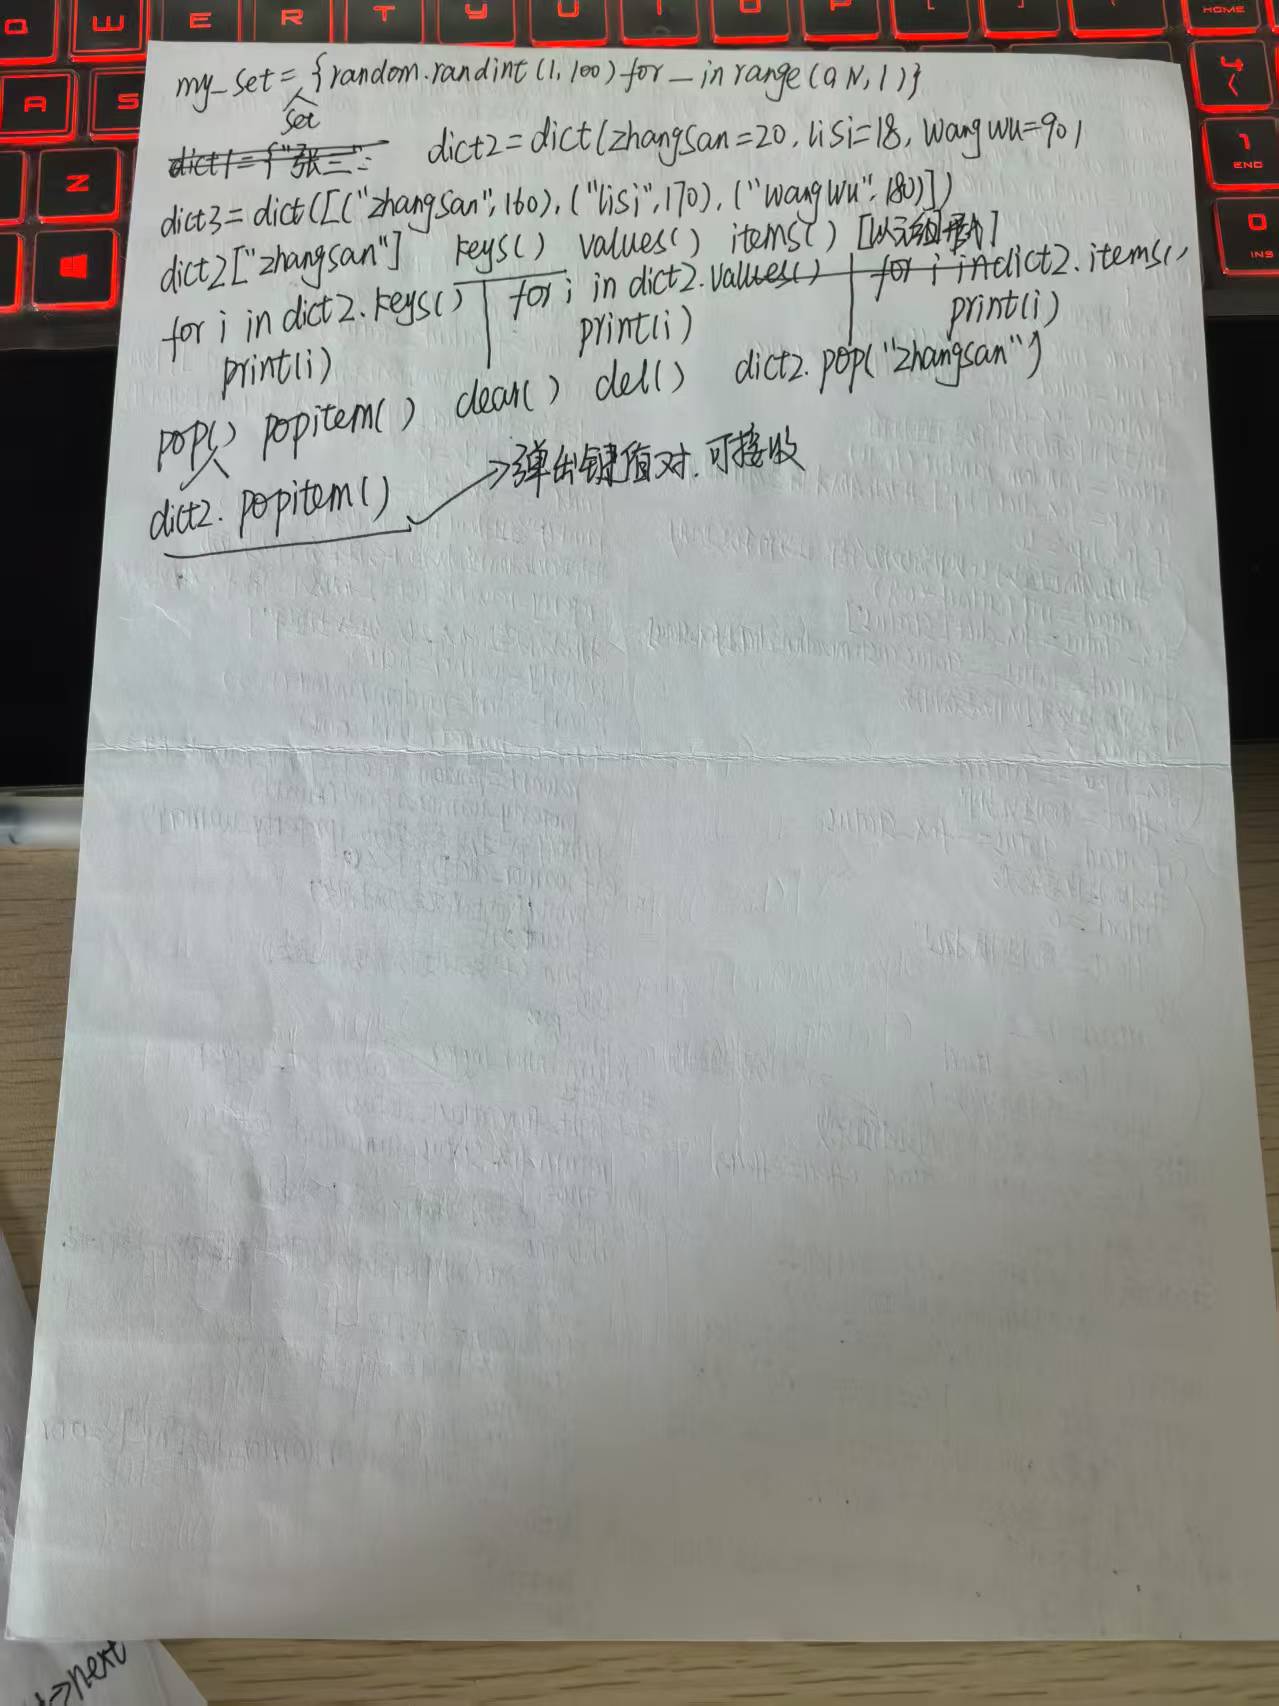 Q W E R T Y U I O P [ ] HOME
A S
Z
4
1 END
0 INS
my_set = {random.randint(1,100) for _ in range(a N, 1)}
set
dict1 = {"张三":
dict2 = dict(zhangsan=20, lisi=18, wangwu=90)
dict3 = dict([("zhangsan",160), ("lisi",170), ("wangwu",180)])
dict2["zhangsan"] keys() values() items() [以元组形式]
for i in dict2.keys() for i in dict2.values() for i in dict2.items()
print(i) print(i) print(i)
pop() popitem() clear() del() dict2.pop("zhangsan")
dict2.popitem() →弹出键值对, 可接收
->next